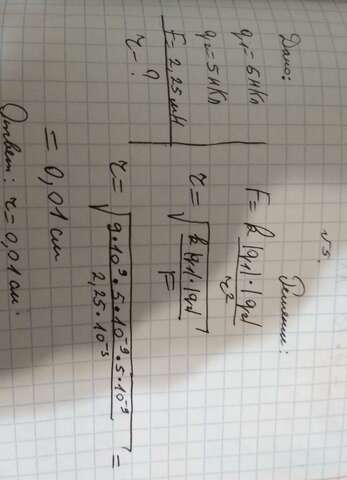 №5.
Дано:
Решение:
q₁=5нКл
q₂=5нКл
F=2,25мН
r-?
F=k |q₁|·|q₂| / r²
r=√(k|q₁|·|q₂| / F)
r=√(9·10⁹·5·10⁻⁹·5·10⁻⁹ / 2,25·10⁻³) =
= 0,01см
Ответ: r=0,01см.